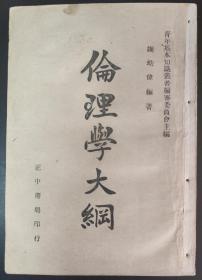 青年基本知識叢書編審委員會主編
倫理學大綱
正中書局印行